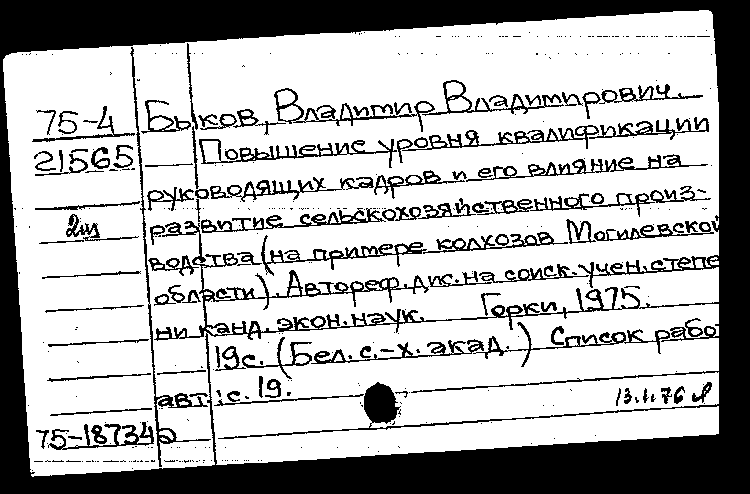 75-4 Быков, Владимир Владимирович.
21565 Повышение уровня квалификации
руководящих кадров и его влияние на
2ш развитие сельскохозяйственного произ-
водства (на примере колхозов Могилевской
области). Автореф. дис. на соиск. учен. степе
ни канд. экон. наук. Горки, 1975.
19с. (Бел. с.-х. акад.) Список работ
авт.: с. 19.
13.1.76
75-18734